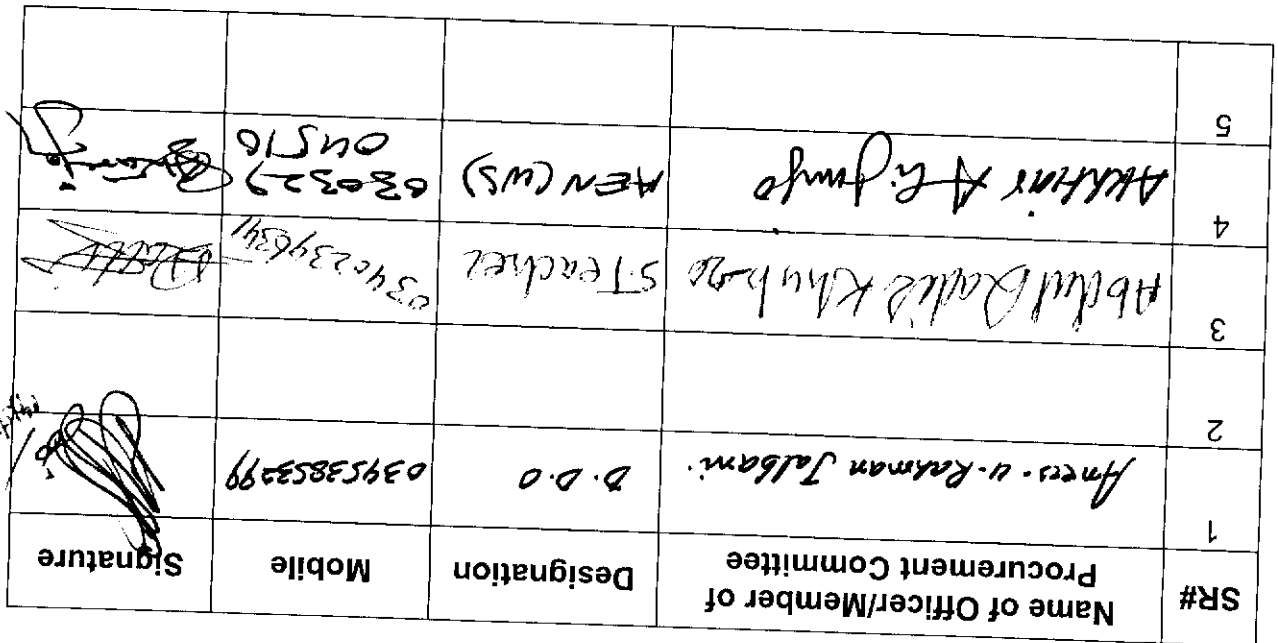 SR# Name of Officer/Member of Procurement Committee Designation Mobile Signature
1 Anees-u-Rahman Jalbani. D.D.O 03453853299
2
3 Abdul Qadir S.Teacher
4 Akhtiar Ali Junejo AEN (WS) 030327 04510
5